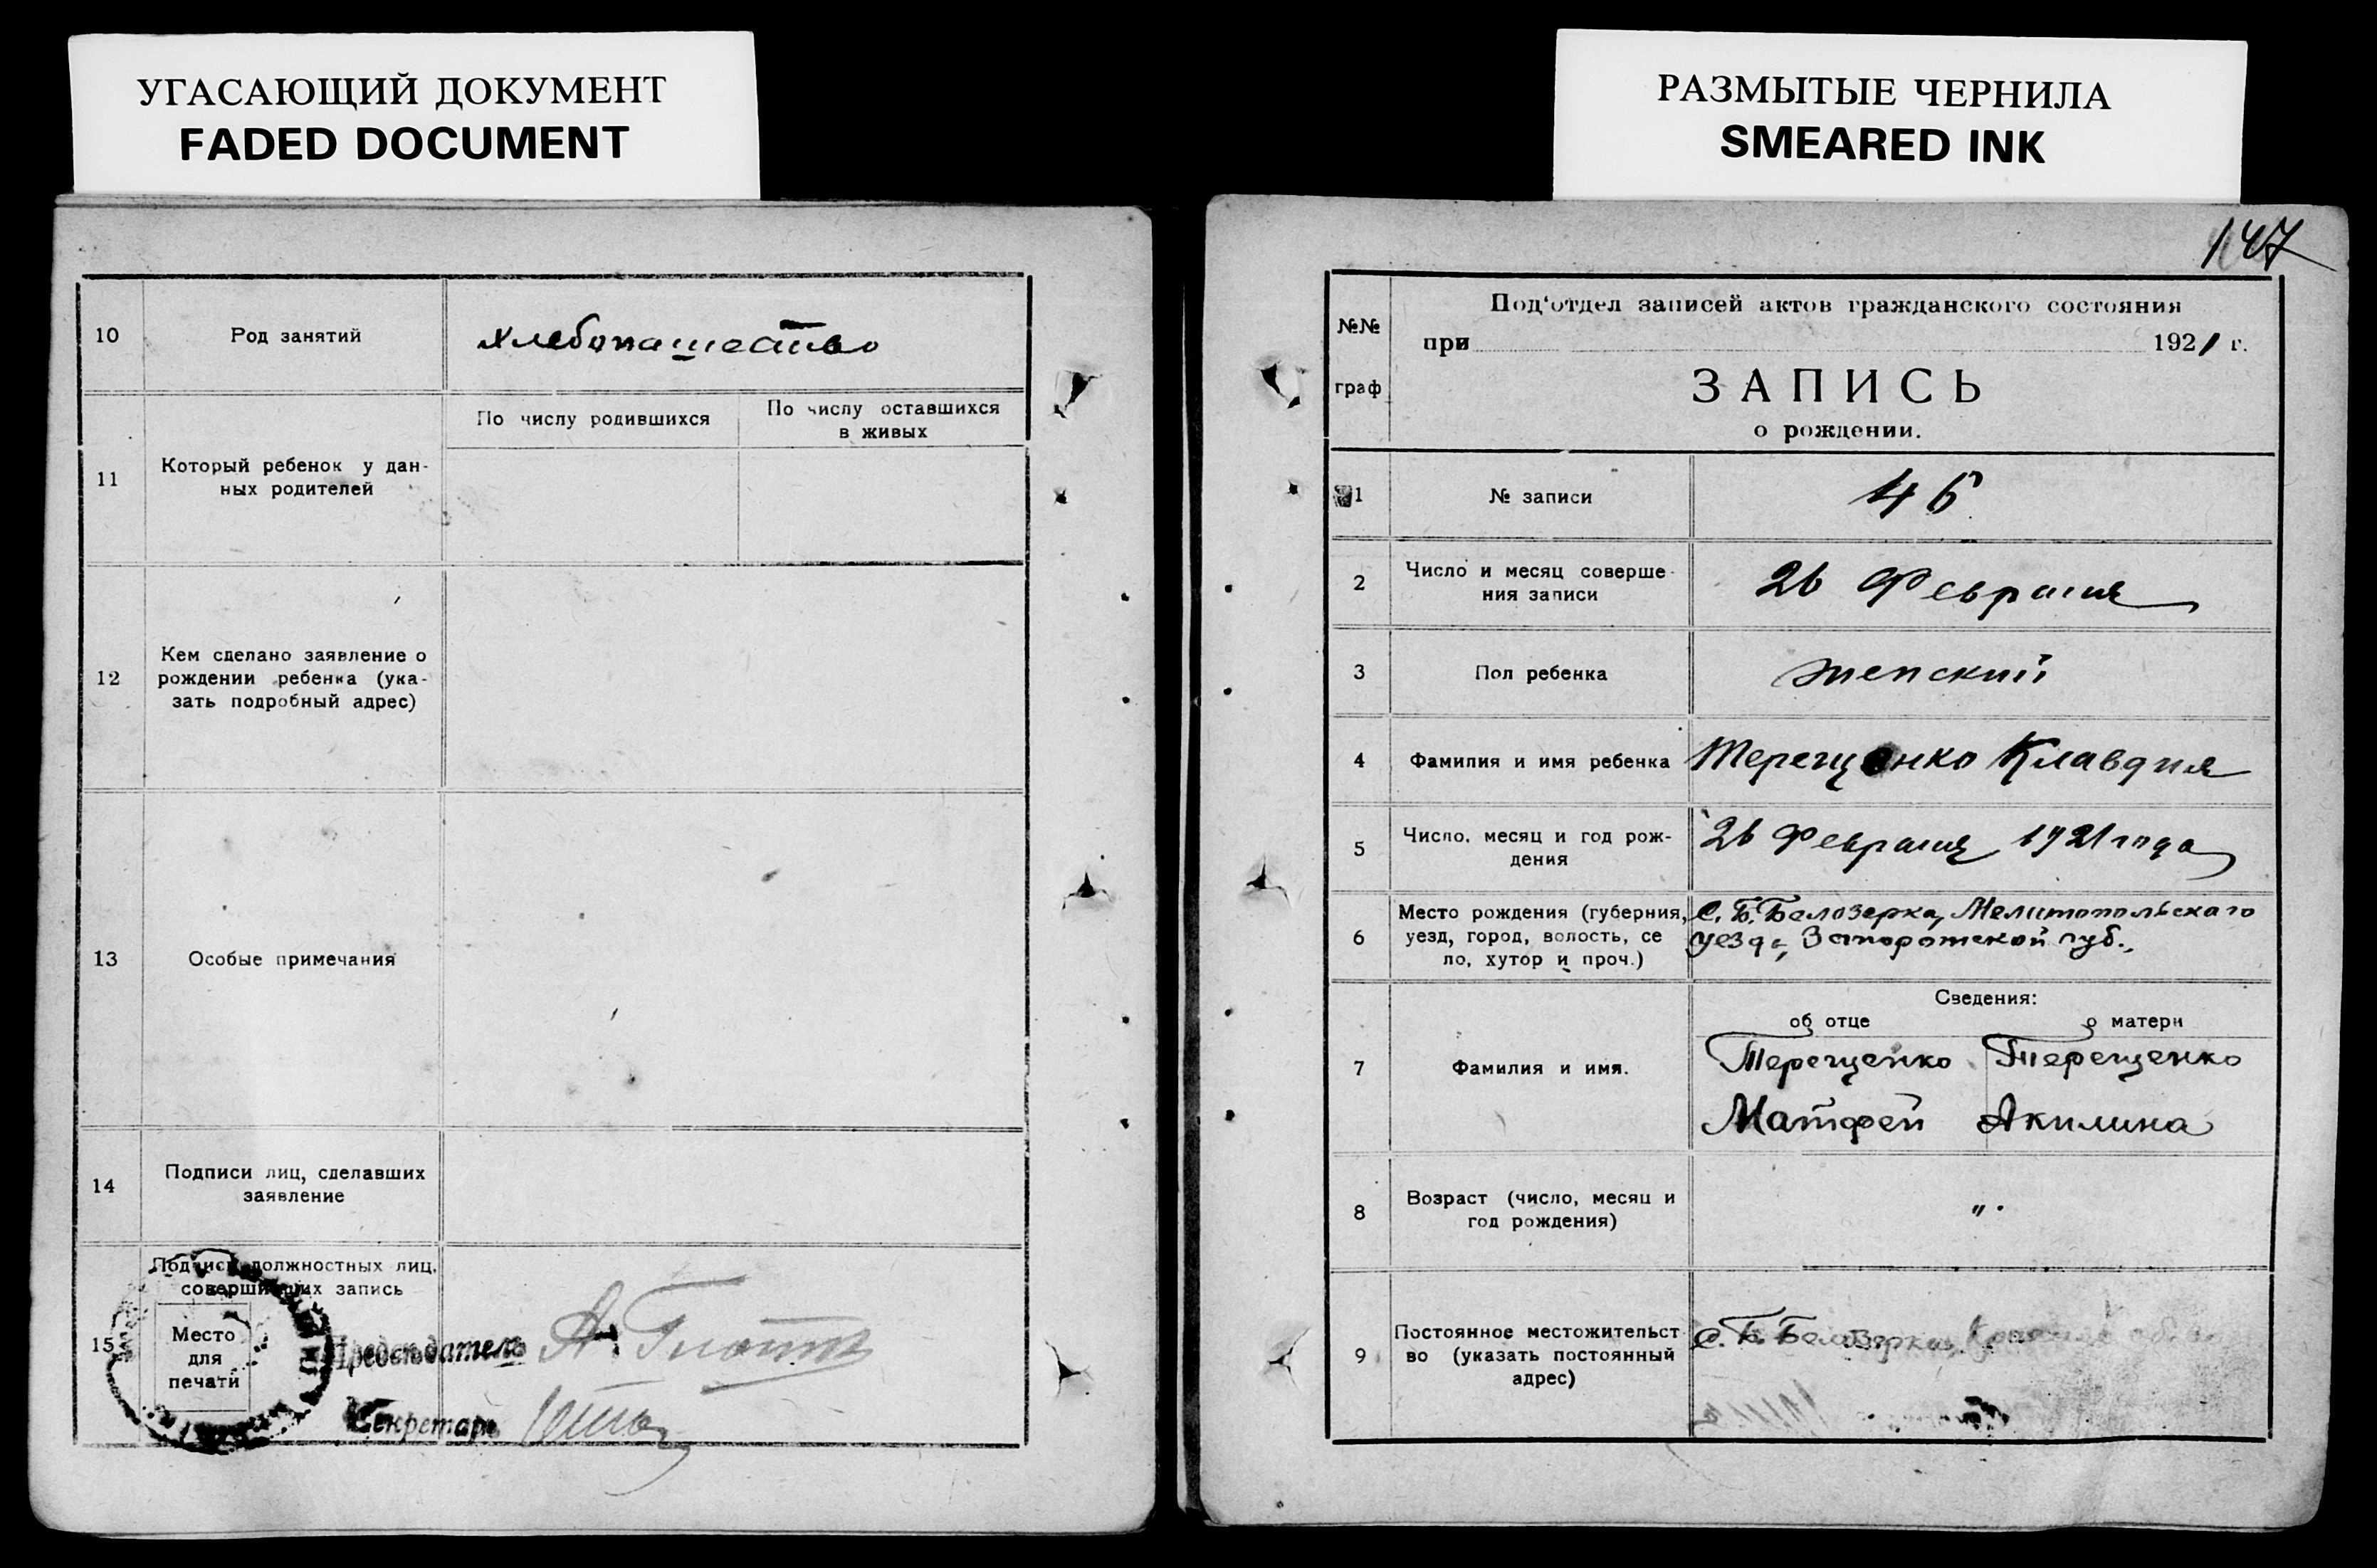 УГАСАЮЩИЙ ДОКУМЕНТ
FADED DOCUMENT
10
Род занятий
хлебопашество
11
Который ребенок у дан-
ных родителей
По числу родившихся
По числу оставшихся
в живых
12
Кем сделано заявление о
рождении ребенка (ука-
зать подробный адрес)
13
Особые примечания
14
Подписи лиц, сделавших
заявление
15
Подписи должностных лиц,
совершивших запись
Место
для
печати
Председатель
Секретарь
РАЗМЫТЫЕ ЧЕРНИЛА
SMEARED INK
147
№№
граф
Под'отдел записей актов гражданского состояния
при 1921 г.
ЗАПИСЬ
о рождении.
1
№ записи
46
2
Число и месяц соверше-
ния записи
26 Февраля
3
Пол ребенка
женский
4
Фамилия и имя ребенка
Терещенко Клавдия
5
Число, месяц и год рож-
дения
26 Февраля 1921 года
6
Место рождения (губерния,
уезд, город, волость, се
ло, хутор и проч.)
С. Б. Белозерка, Мелитопольскаго
уезда, Запорожской губ.,
Сведения:
об отце
о матери
7
Фамилия и имя.
Терещенко
Матфей
Терещенко
Акилина
8
Возраст (число, месяц и
год рождения)
"
9
Постоянное местожительст
во (указать постоянный
адрес)
С. Б. Белозерка,